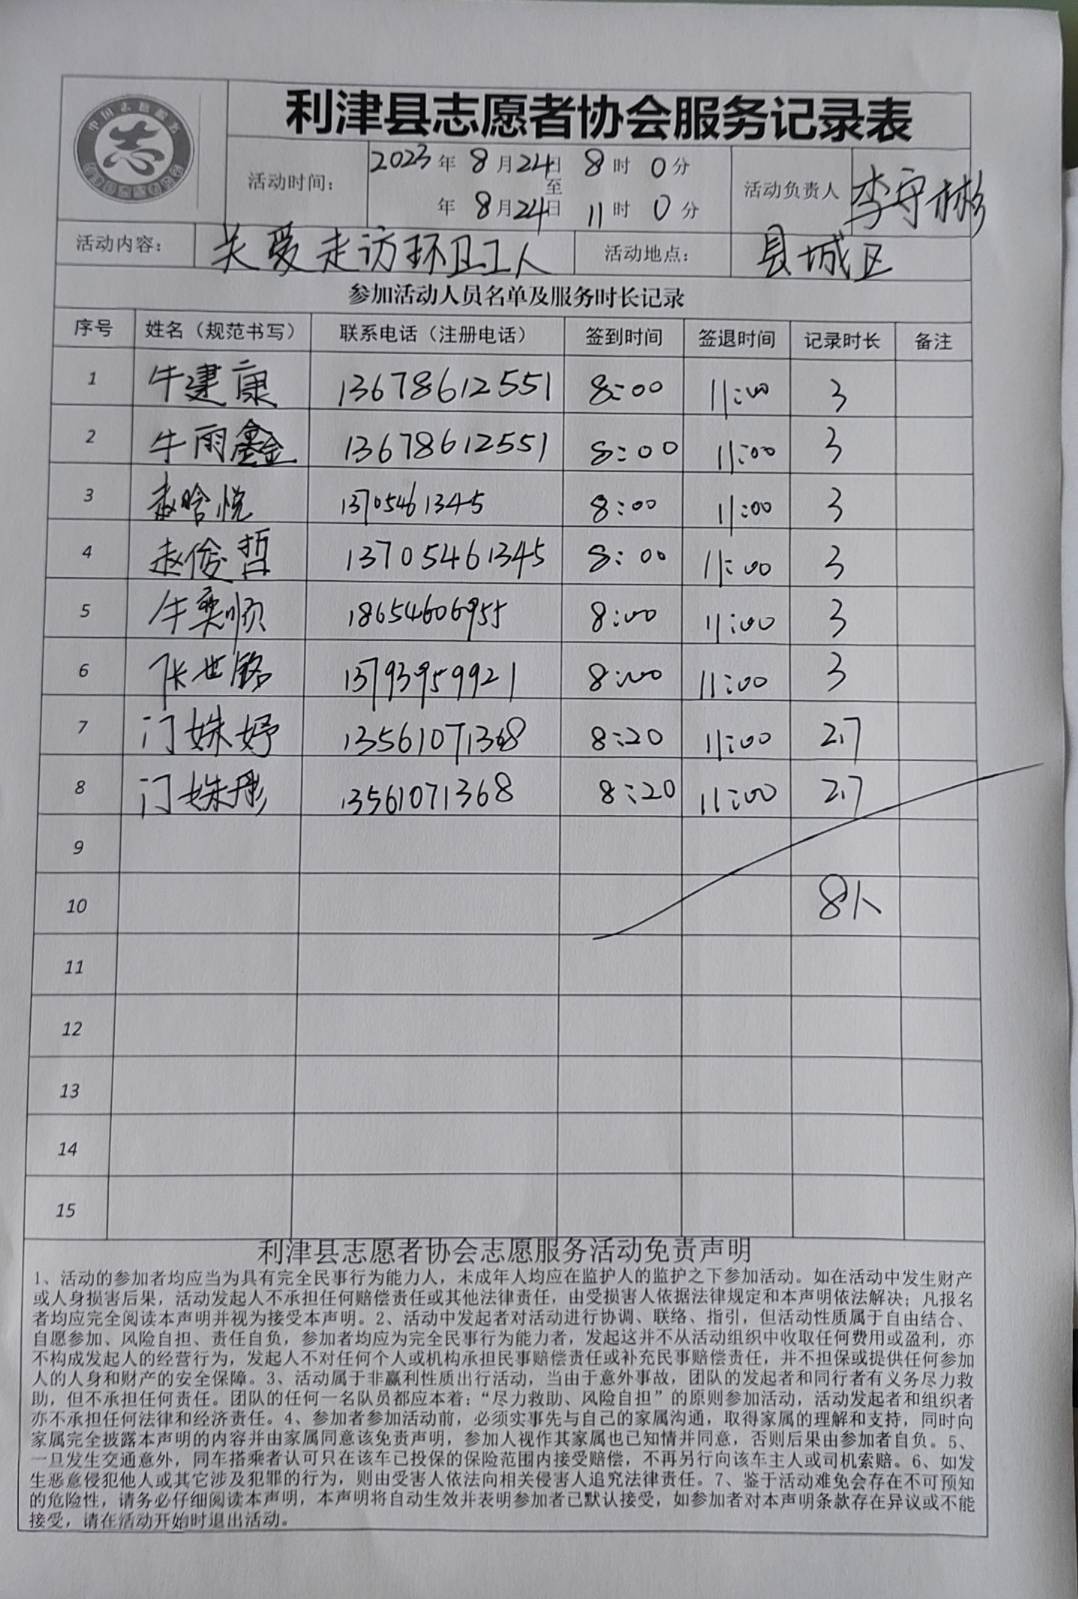 利津县志愿者协会服务记录表
活动时间： 2023年 8月24日 8时 0分
至
年 8月24日 11时 0分
活动负责人 李守彬
活动内容： 关爱走访环卫工人 活动地点： 县城区
参加活动人员名单及服务时长记录
序号 姓名（规范书写） 联系电话（注册电话） 签到时间 签退时间 记录时长 备注
1 牛建康 13678612551 8:00 11:00 3
2 牛雨鑫 13678612551 8:00 11:00 3
3 赵晗悦 13705461345 8:00 11:00 3
4 赵俊哲 13705461345 8:00 11:00 3
5 牛奕顺 18654606955 8:00 11:00 3
6 张世铭 13793959921 8:00 11:00 3
7 门姝妤 13561071368 8:20 11:00 2.7
8 门姝彤 13561071368 8:20 11:00 2.7
9
10 8人
11
12
13
14
15
利津县志愿者协会志愿服务活动免责声明
1、活动的参加者均应当为具有完全民事行为能力人，未成年人均应在监护人的监护之下参加活动。如在活动中发生财产
或人身损害后果，活动发起人不承担任何赔偿责任或其他法律责任，由受损害人依据法律规定和本声明依法解决；凡报名
者均应完全阅读本声明并视为接受本声明。2、活动中发起者对活动进行协调、联络、指引，但活动性质属于自由结合、
自愿参加、风险自担、责任自负，参加者均应为完全民事行为能力者，发起这并不从活动组织中收取任何费用或盈利，亦
不构成发起人的经营行为，发起人不对任何个人或机构承担民事赔偿责任或补充民事赔偿责任，并不担保或提供任何参加
人的人身和财产的安全保障。3、活动属于非赢利性质出行活动，当由于意外事故，团队的发起者和同行者有义务尽力救
助，但不承担任何责任。团队的任何一名队员都应本着：“尽力救助、风险自担”的原则参加活动，活动发起者和组织者
亦不承担任何法律和经济责任。4、参加者参加活动前，必须实事先与自己的家属沟通，取得家属的理解和支持，同时向
家属完全披露本声明的内容并由家属同意该免责声明，参加人视作其家属也已知情并同意，否则后果由参加者自负。5、
一旦发生交通意外，同车搭乘者认可只在该车已投保的保险范围内接受赔偿，不再另行向该车主人或司机索赔。6、如发
生恶意侵犯他人或其它涉及犯罪的行为，则由受害人依法向相关侵害人追究法律责任。7、鉴于活动难免会存在不可预知
的危险性，请务必仔细阅读本声明，本声明将自动生效并表明参加者已默认接受，如参加者对本声明条款存在异议或不能
接受，请在活动开始时退出活动。